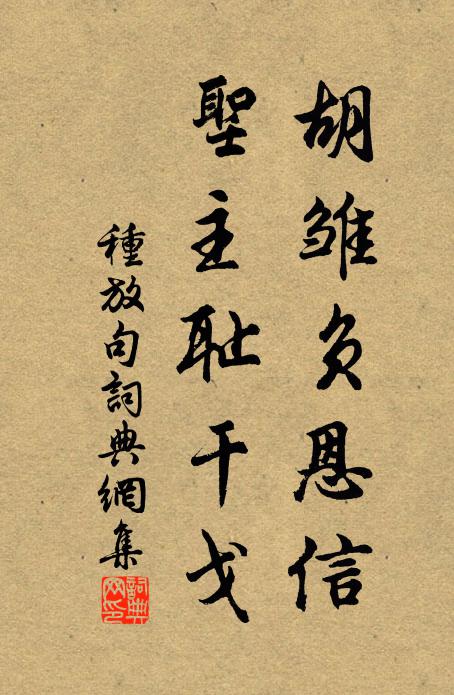 胡雏負恩信
聖主耻干戈
種放句詞典網集
詞典網印